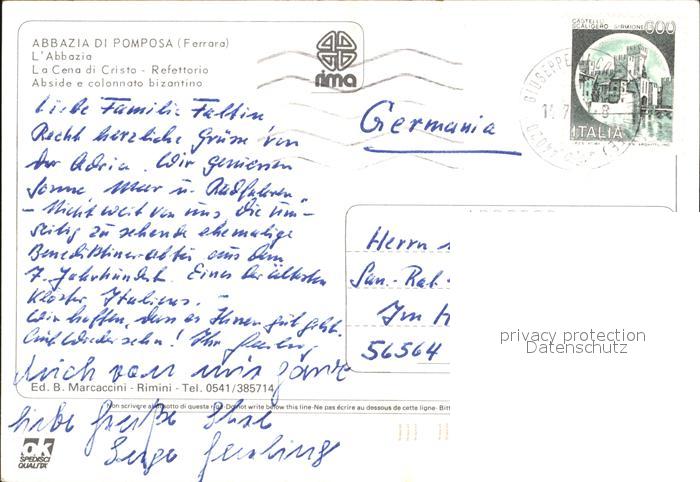 ABBAZIA DI POMPOSA (Ferrara)
L'Abbazia
La Cena di Cristo - Refettorio
Abside e colonnato bizantino
rima
CASTELLO
SCALIGERO SIRMIONE
600
ITALIA
Germania
Liebe Familie
Recht herzliche Grüsse von
der Adria. Wir geniessen
Sonne, Meer u. Radfahren
- Nicht weit von uns, die
zu sehende ehemalige
Benediktinerabtei aus dem
7. Jahrhundert. Eines der ältesten
Klöster Italiens. -
Wir hoffen, dass es Ihnen gut geht.
Auf Wiedersehn! Ihr
Auch von mir ganz
liebe Grüße Ihre
Herrn
San.-Rat
Im
56564
privacy protection
Datenschutz
Ed. B. Marcaccini - Rimini - Tel. 0541/385714
Non scrivere al disotto di questa riga-Do not write below this line-Ne pas écrire au dessous de cette ligne- Bitt
ok
SPEDISCI
QUALITA'